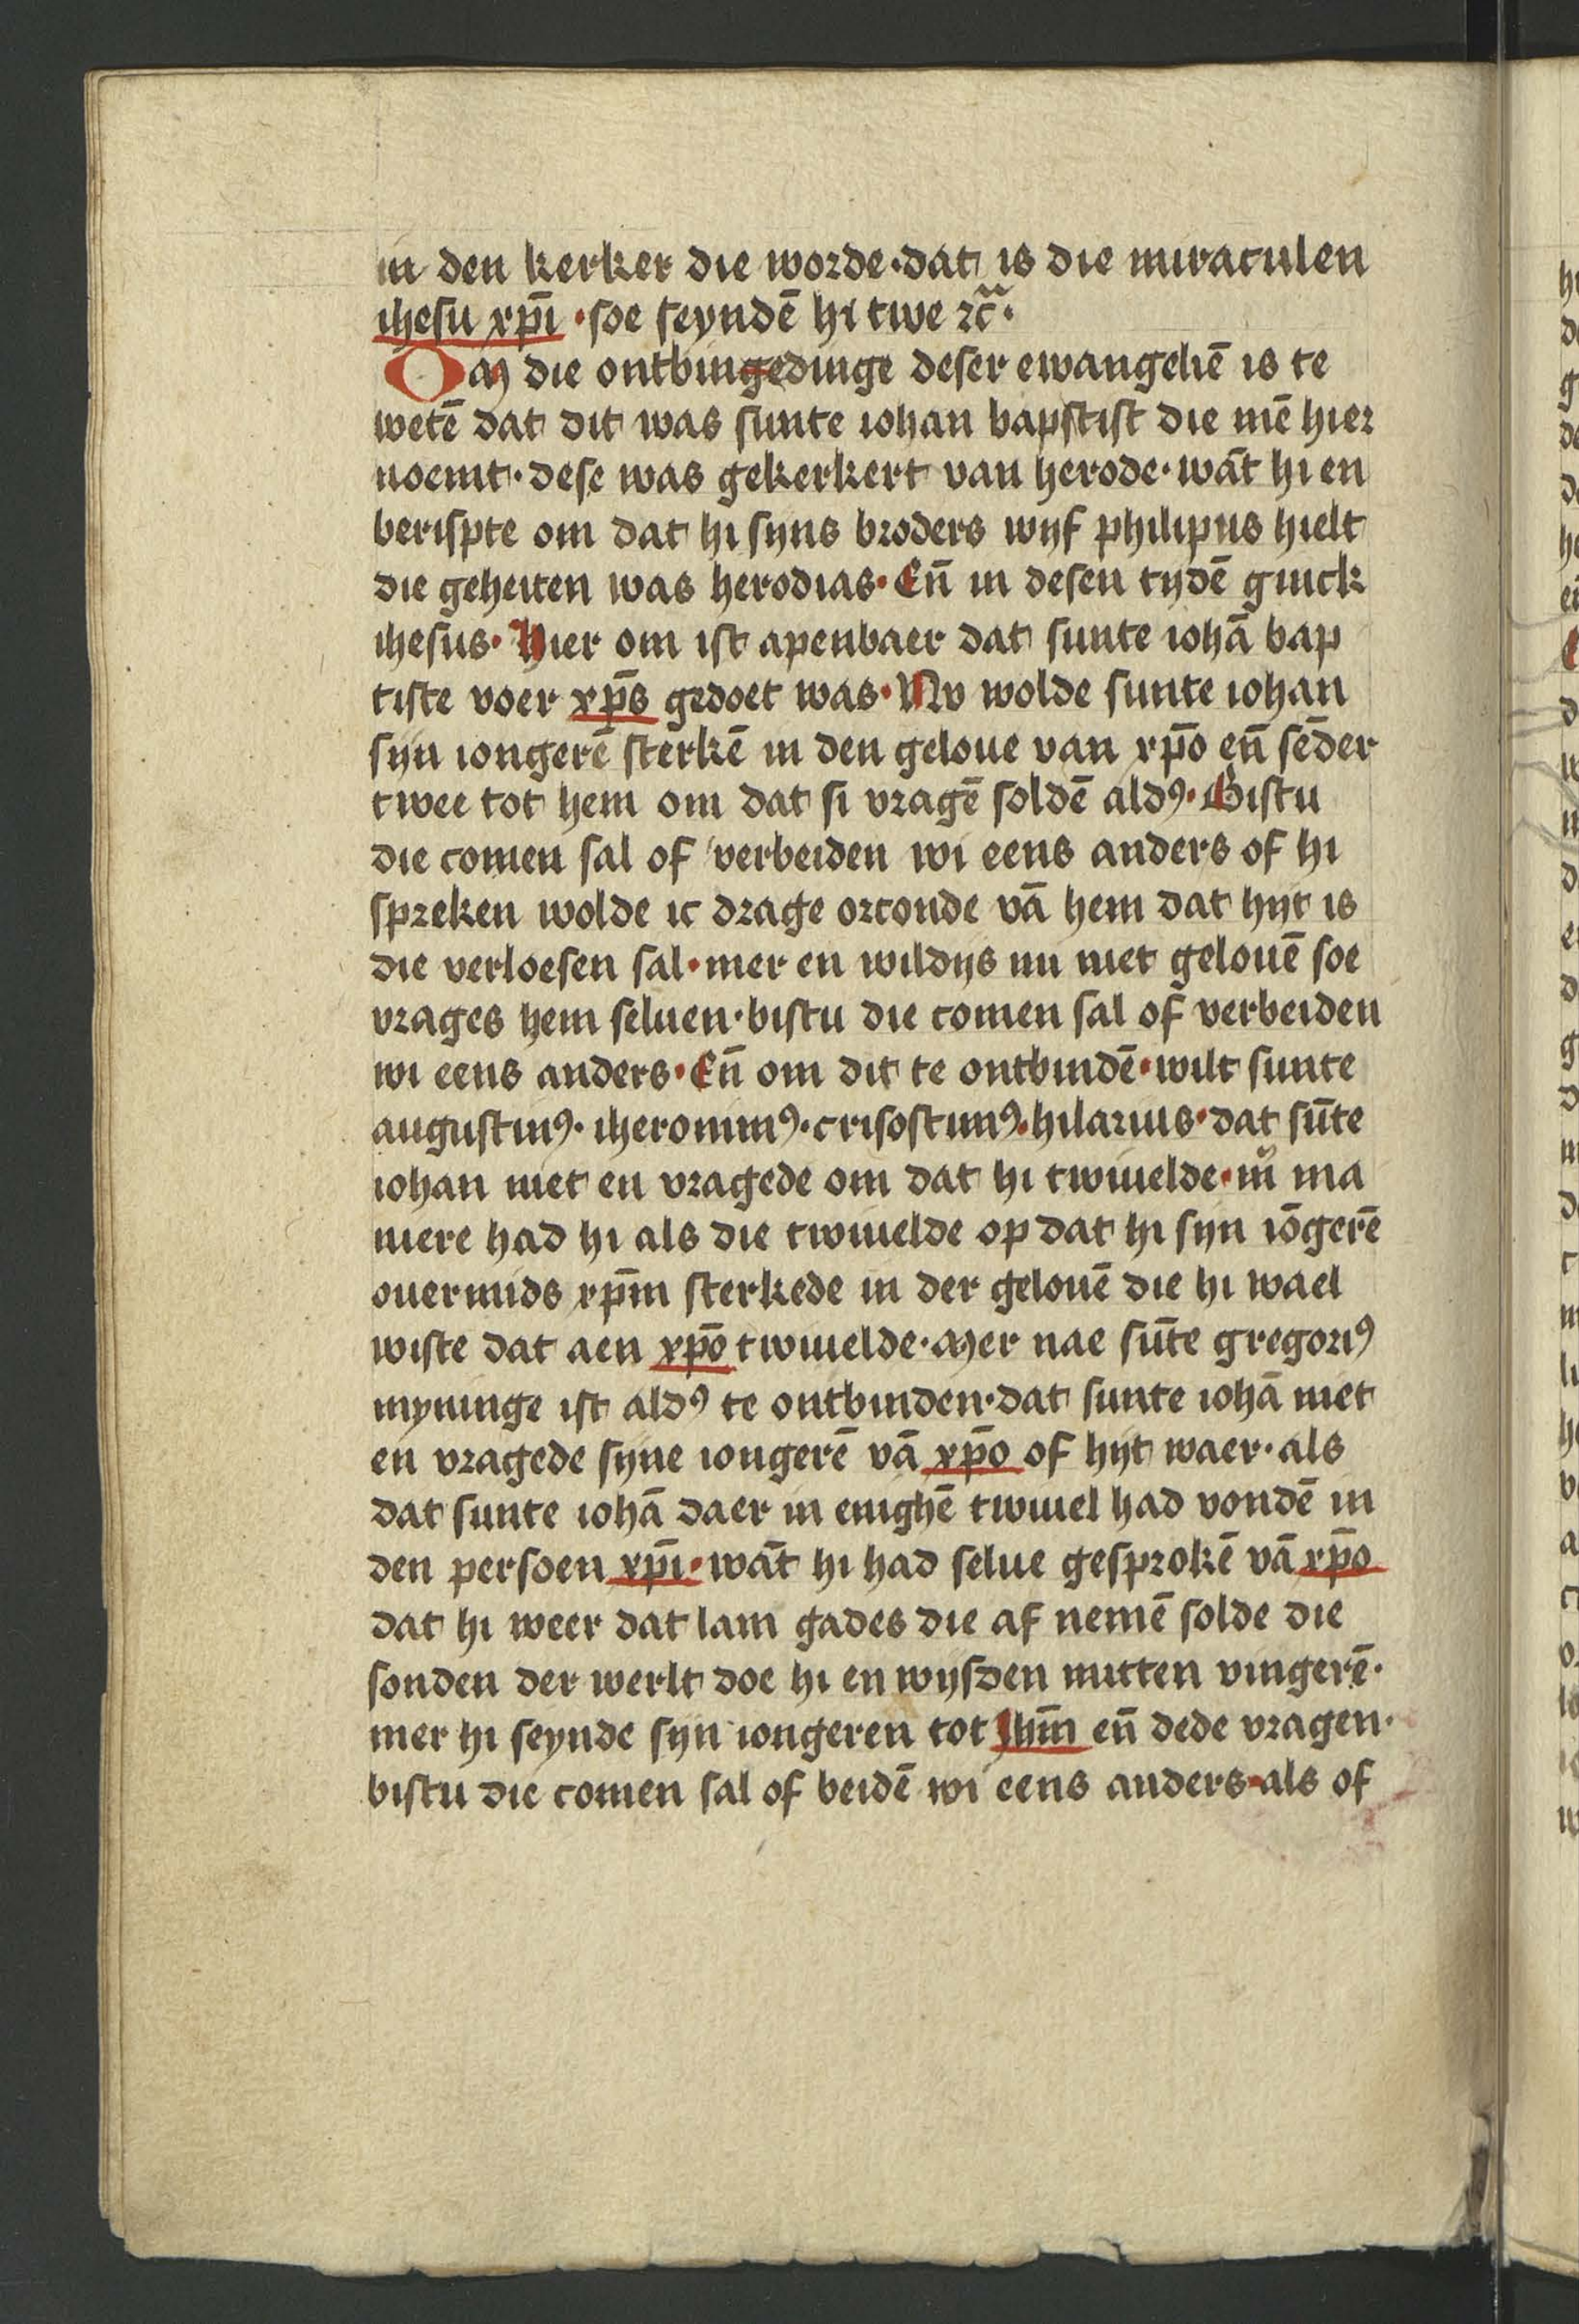 in den kerker die worde·dat is die miraculen
ihesu xp̄i ·soe seyndē hi twe ⁊c̃·
Om die ontbingedinge deser ewangeliē is te
wetē dat dit was sunte iohan bapstist die mē hier
noemt·dese was gekerkert van herode·wāt hi en
berispte om dat hi syns broders wyf philipus hielt
die geheiten was herodias·Eñ in desen tydē ginck
ihesus·Hier om ist apenbaer dat sunte iohā bap
tiste voer xp̄s gedoet was·Nv wolde sunte iohan
syn iongerē sterkē in den geloue van xp̄o eñ sēder
twee tot hem om dat si vragē soldē aldꝰ·Bistu
die comen sal of verbeiden wi eens anders of hi
spreken wolde ic drage orconde vā hem dat hyt is
die verloesen sal·mer en wildys nu niet gelouē soe
vrages hem seluen·bistu die comen sal of verbeiden
wi eens anders·Eñ om dit te ontbindē·wilt sunte
augustinꝰ·iheronimꝰ·crisostimꝰ·hilarius·dat sūte
iohan niet en vragede om dat hi twiuelde·m̄ ma
niere had hi als die twiuelde op dat hi syn iōgerē
ouermids xp̄m sterkede in der gelouē die hi wael
wiste dat aen xp̄o twiuelde·Mer nae sūte gregoriꝰ
myninge ist aldꝰ te ontbinden·dat sunte iohā niet
en vragede syne iongerē vā xp̄o of hyt waer·als
dat sunte iohā daer in enighē twiuel had vondē in
den persoen xp̄i·wāt hi had selue gesprokē vā xp̄o
dat hi weer dat lam gades die af nemē solde die
sonden der werlt doe hi en wysden mitten vingerē·
mer hi seynde syn iongeren tot Ihm̄ eñ dede vragen·
bistu die comen sal of beidē wi eens anders·als of